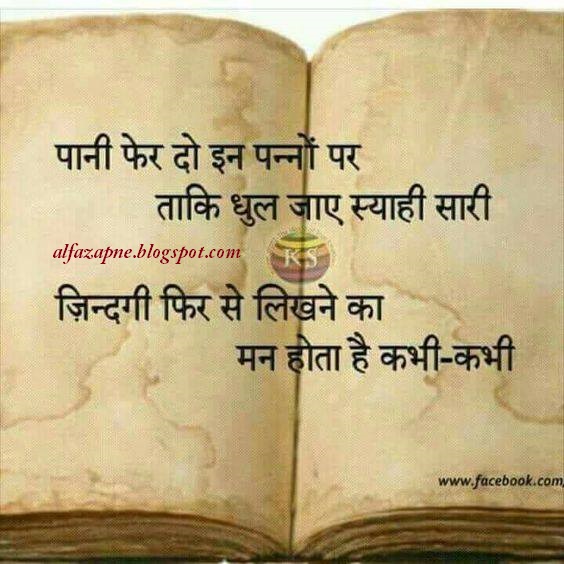 पानी फेर दो इन पन्नों पर
ताकि धुल जाए स्याही सारी
alfazapne.blogspot.com
KS
ज़िन्दगी फिर से लिखने का
मन होता है कभी-कभी
www.facebook.com/